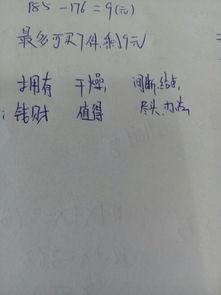 185-176=9(元)
最多可买7件,剩9元
拥有 干燥, 间断.结束,
钱财 值得 尽头.办法,